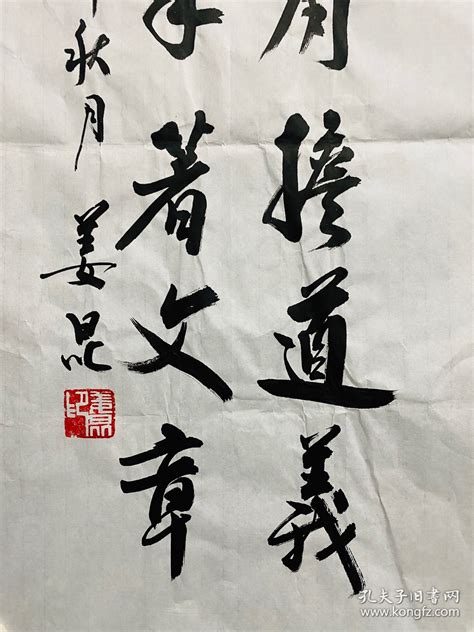 擔道義
著文章
秋月 姜昆
孔夫子旧书网
www.kongfz.com